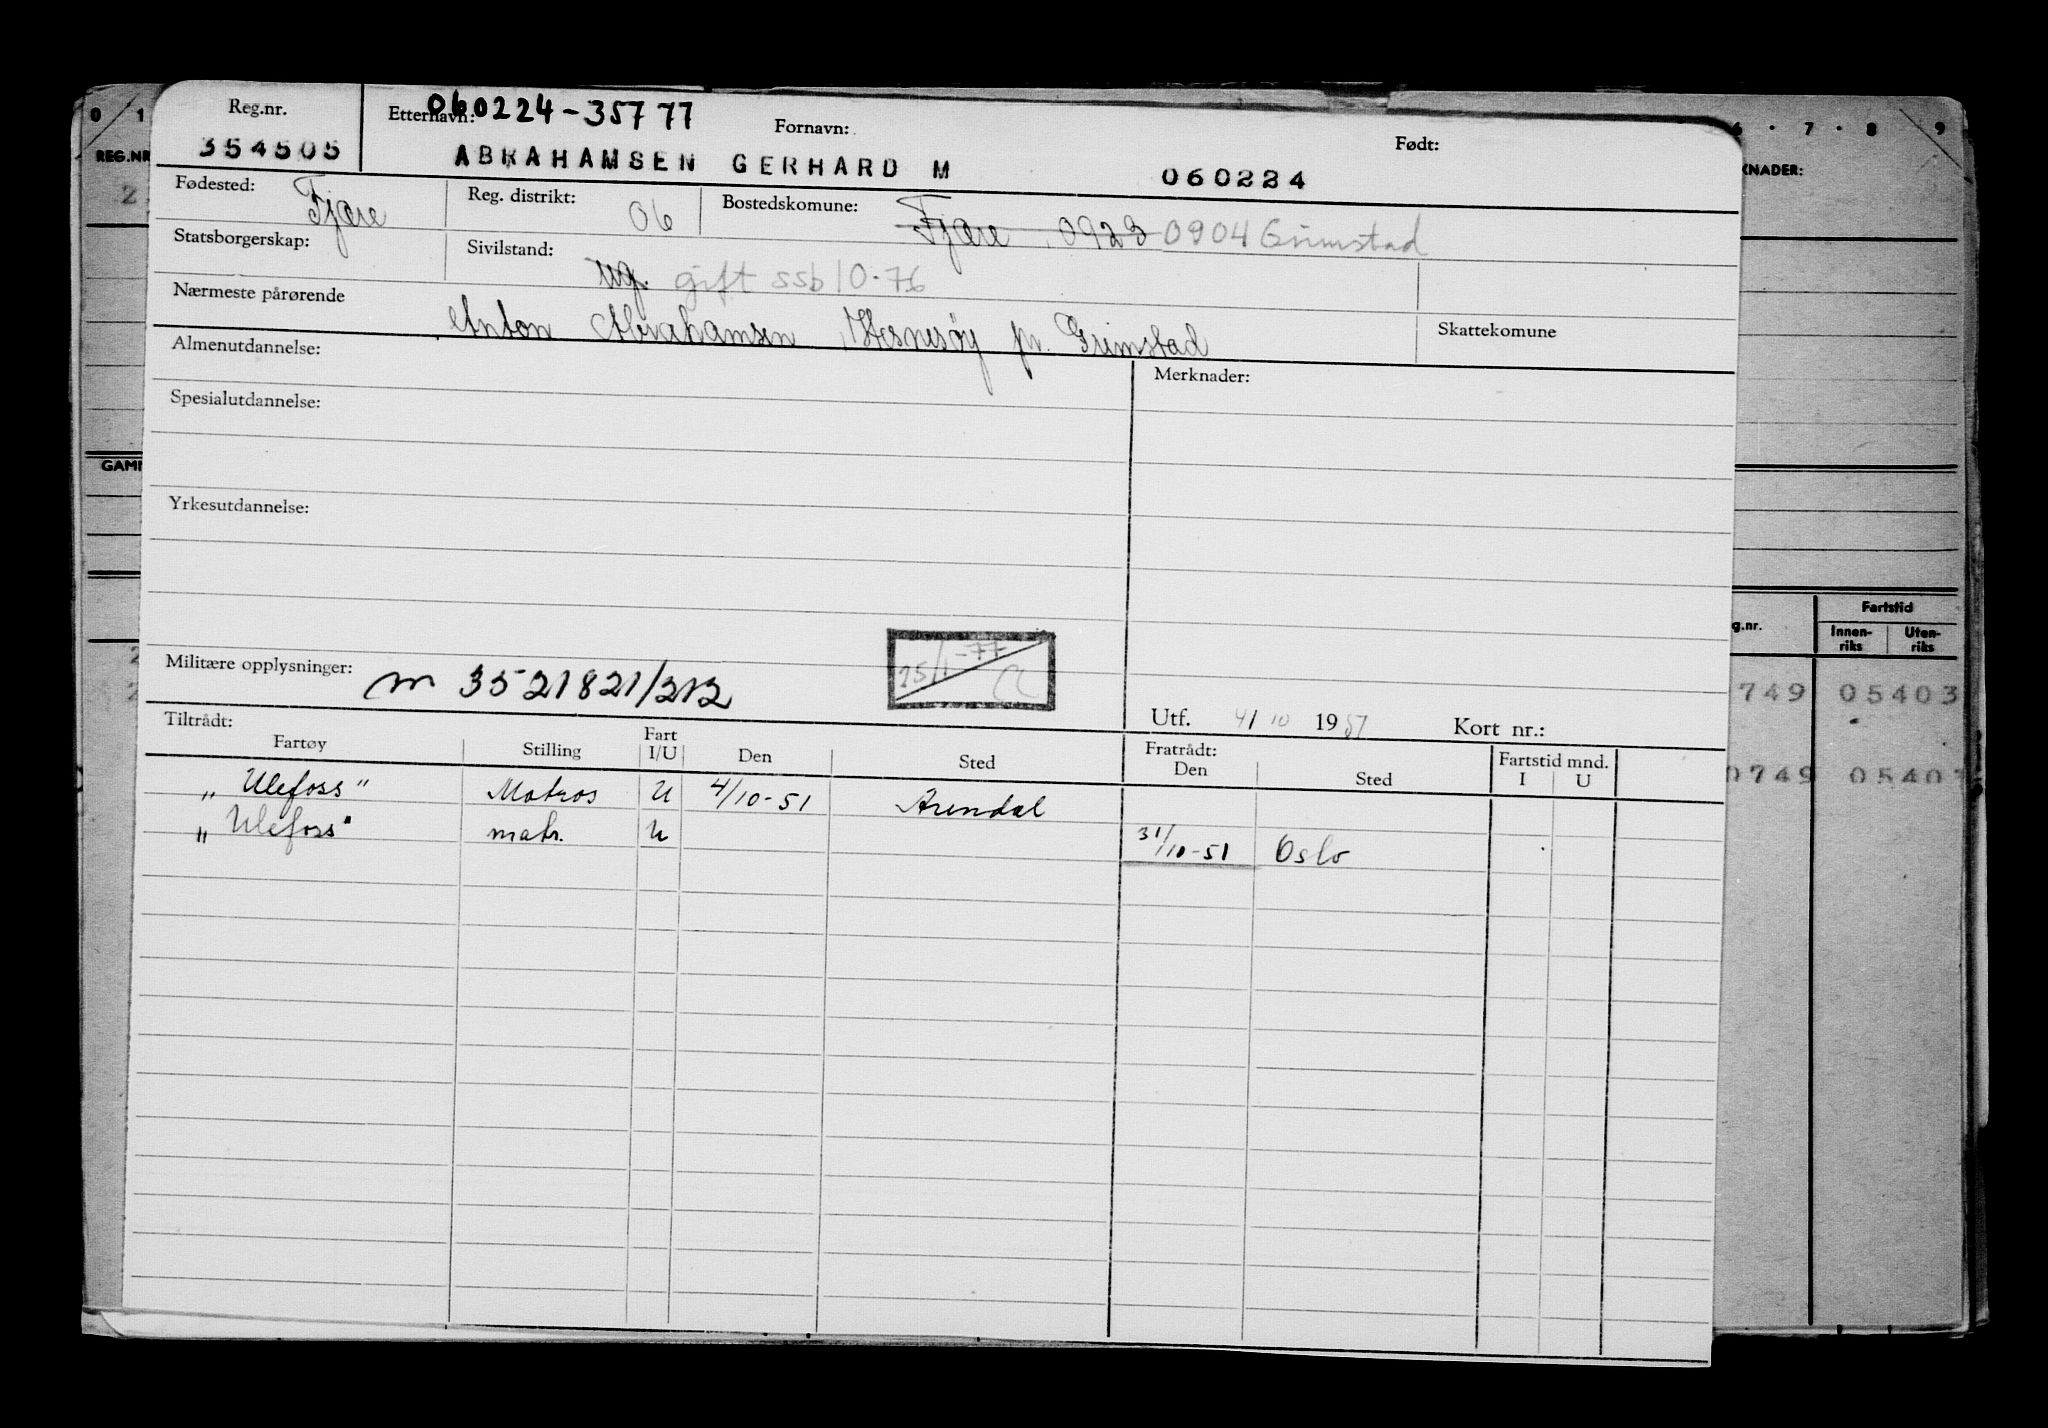 Reg.nr.
354505
Etternavn: 060224-35777
Fornavn:
Født:
ABRAHAMSEN GERHARD M 060224
Fødested: Fjære
Reg. distrikt: 06
Bostedskomune: Fjære 0923 0904 Grimstad
Statsborgerskap:
Sivilstand: ug. gift ssb 10-76
Nærmeste pårørende Anton Abrahamsen, Hesnesøy pr. Grimstad
Skattekomune
Almenutdannelse:
Merknader:
Spesialutdannelse:
Yrkesutdannelse:
Militære opplysninger: m 3521821/212
25/1-77
Utf. 4/10 1951 Kort nr.:
Tiltrådt:
Fartøy Stilling Fart I/U Den Sted
Fratrådt:
Den Sted
Fartstid mnd.
I U
„Ulefoss" Matros U 4/10-51 Arendal
„Ulefoss" matr. U 31/10-51 Oslo
0 1
REG.NR
2
GAM
6 · 7 · 8 9
KNADER:
g.nr.
Fartstid
Innen-riks Uten-riks
749 05403
0749 0540